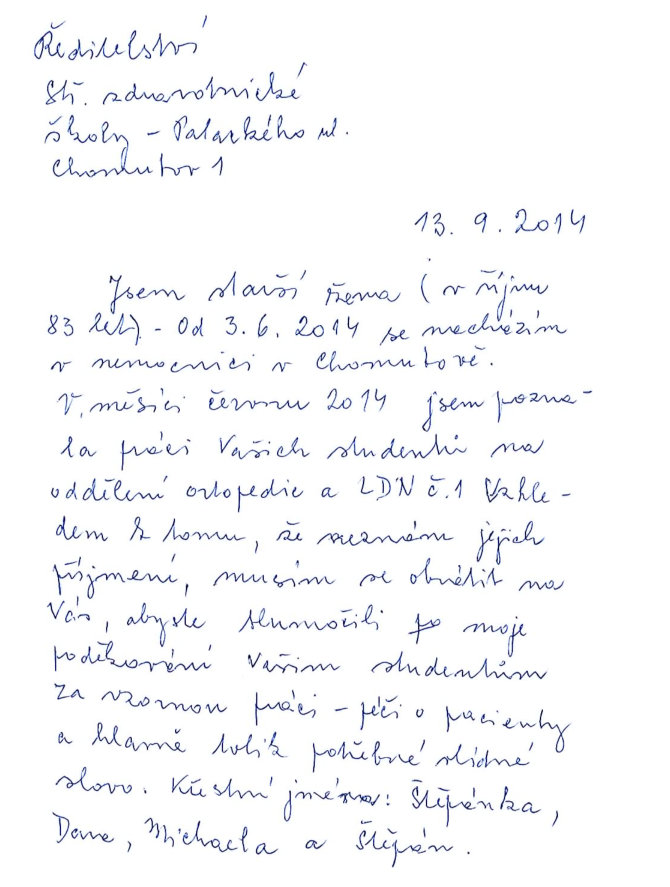 Ředitelství
Stř. zdravotnické
školy - Palackého ul.
Chomutov 1
13. 9. 2014
Jsem starší žena (v říjnu
83 let) - Od 3. 6. 2014 se nacházím
v nemocnici v Chomutově.
V, měsíci červnu 2014 jsem pozna-
la práci Vašich studentů na
oddělení ortopedie a LDN č.1 Vzhle-
dem k tomu, že neznám jejich
příjmení, musím se obrátit na
Vás, abyste tlumočili po moje
poděkování Vašim studentům
za vzornou práci - péči o pacienty
a hlavně tolik potřebné vlídné
slovo. Křestní jména: Štěpánka,
Dana, Michaela a Štěpán.